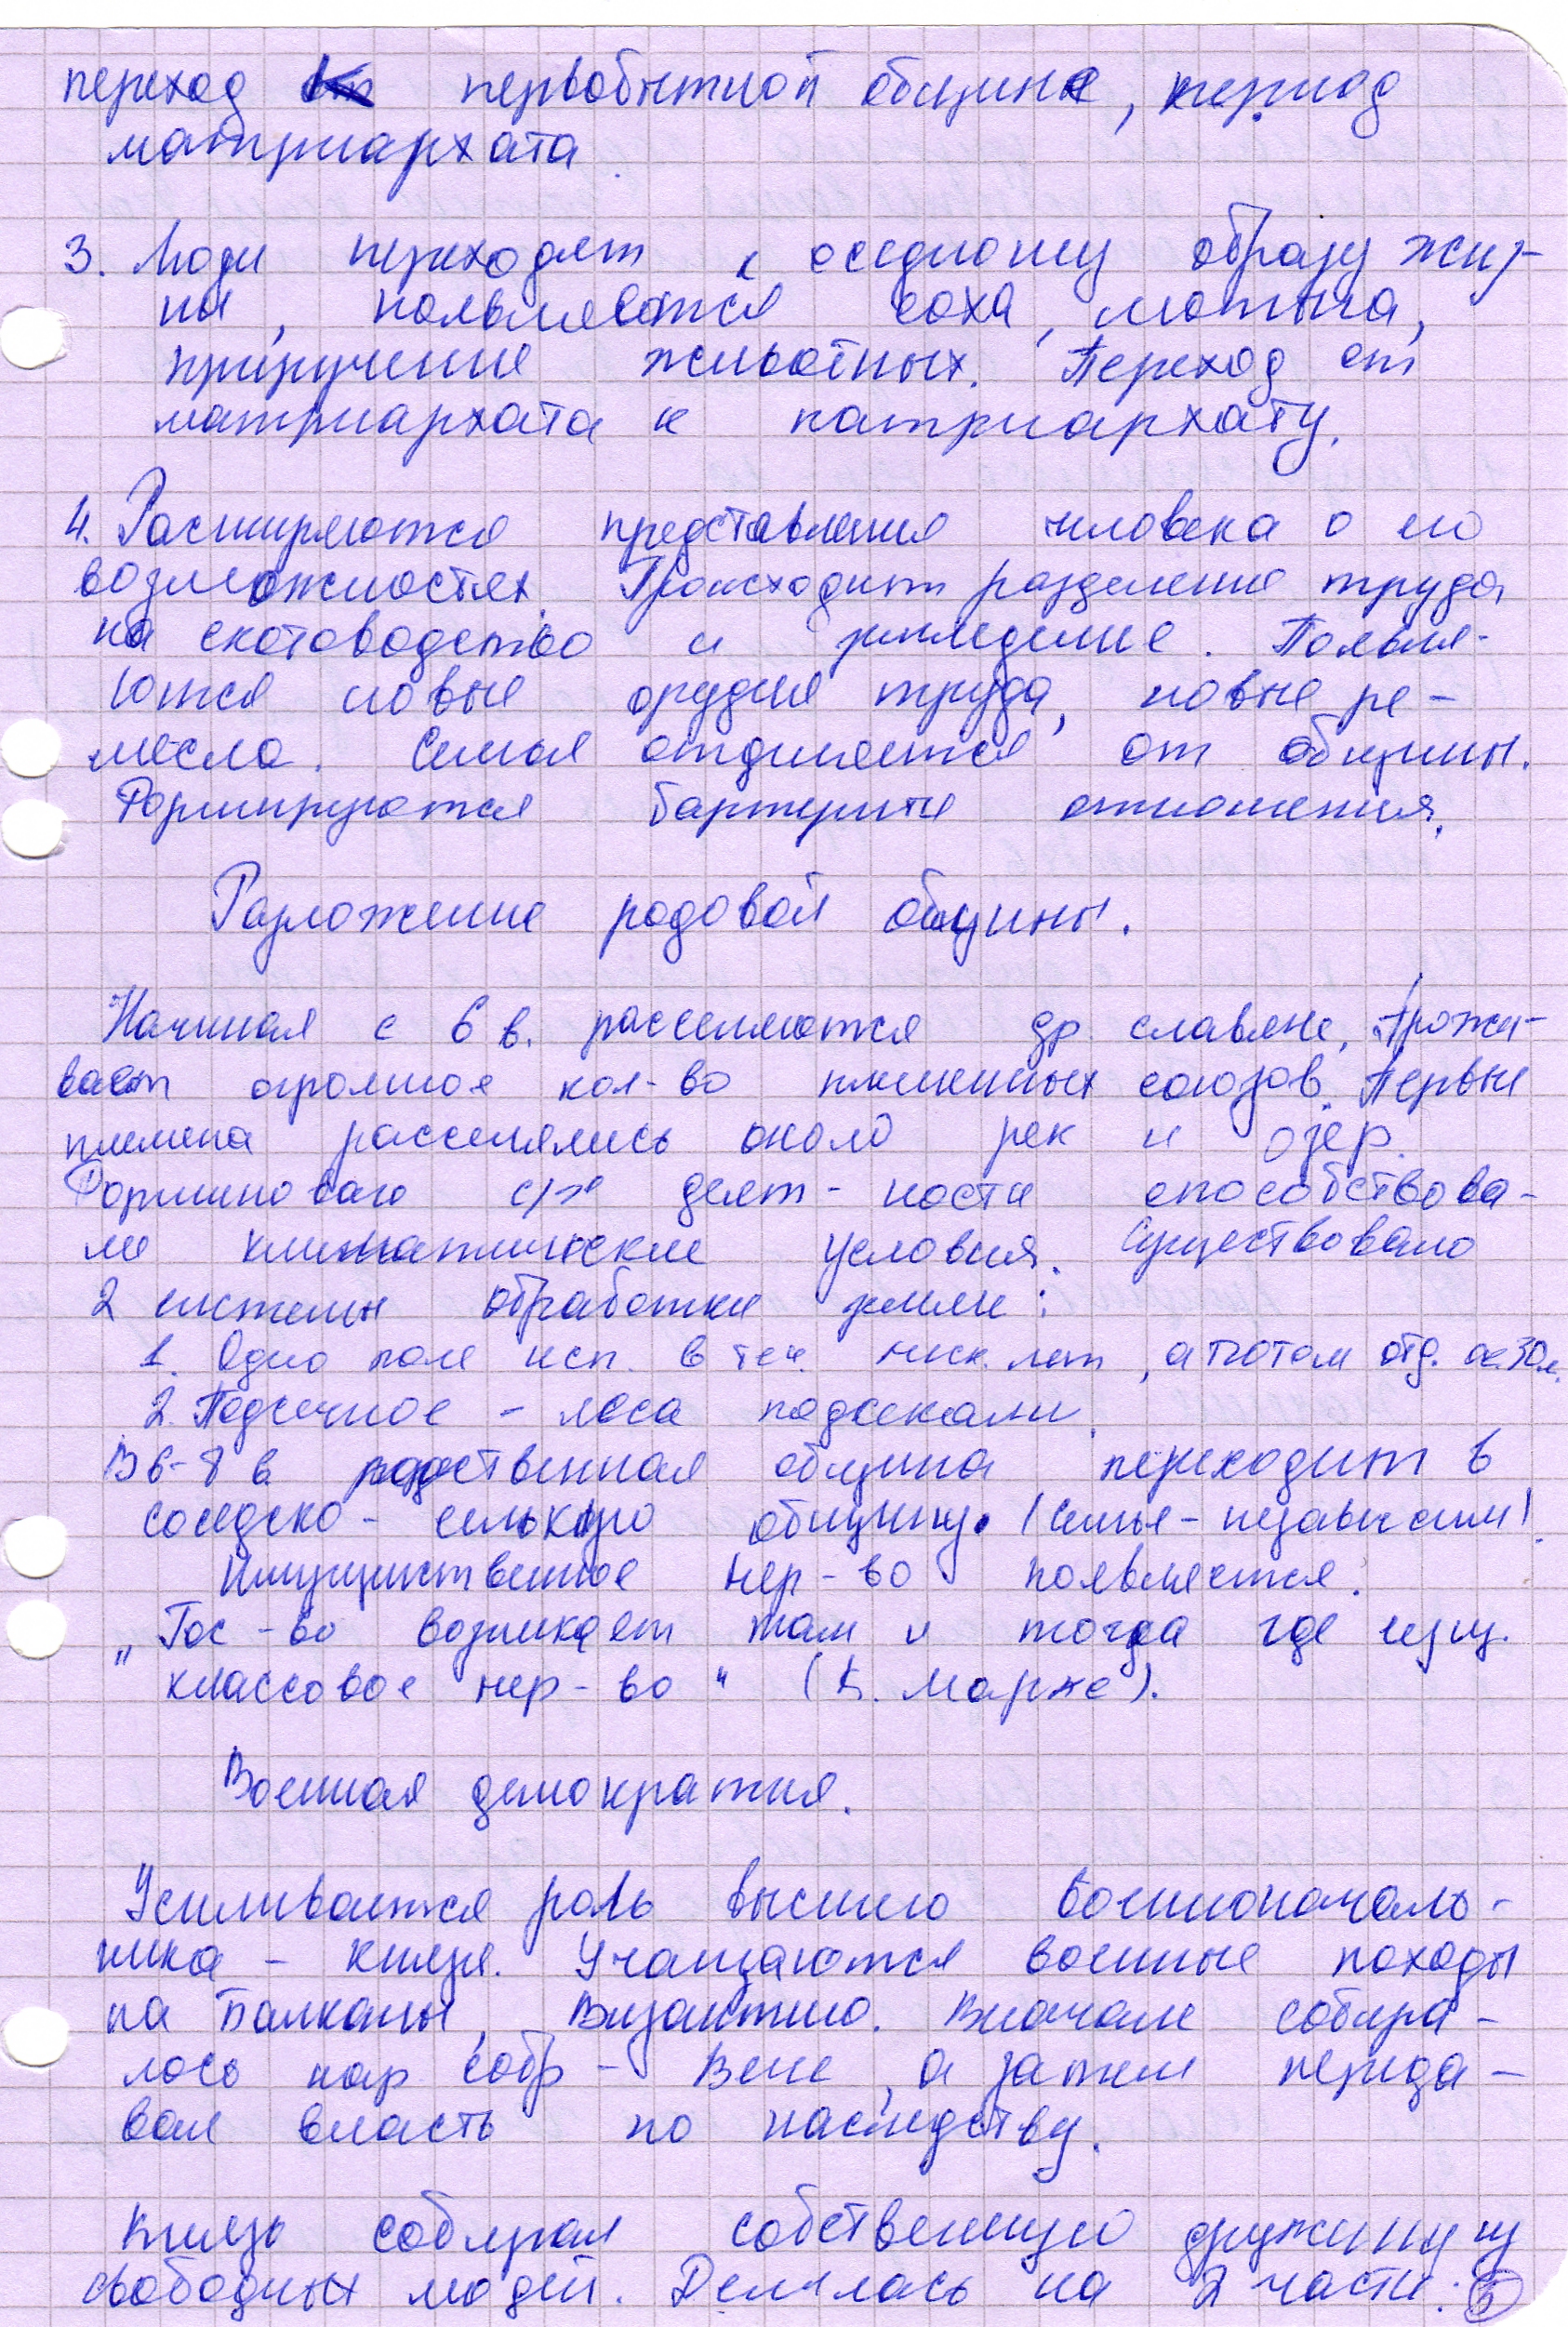 переход к первобытной общине, период
матриархата.
3. Люди переходят к оседлому образу жиз-
ни, появляются соха, мотыга,
приручение животных. Переход от
матриархата к патриархату.
4. Расширяются представления человека о его
возможностях. Происходит разделение труда
на скотоводство и земледелие. Появля-
ются новые орудия труда, новые ре-
месла. Семья отделяется от общины.
Формируются бартерные отношения.
Разложение родовой общины.
Начиная с 6 в. расселяются др. славяне. Прожи-
вает огромное кол-во племенных союзов. Первые
племена расселялись около рек и озер.
с/х деят-ности способствова-
ли климатические условия. Существовало
2 системы обработки земли:
1. Одно поле исп. в теч. неск. лет, а потом отд. ок. 30 л.
2. Подсечное - леса подсекали.
В 6-8 в. родственная община переходит в
соседско - сельскую общину. (Семья - независим)
Имущественное нер-во появляется.
„Гос-во возникает там и тогда где
классовое нер-во" (К. Маркс).
Военная демократия.
Усиливается роль высшего военноначаль-
ника - князя. Учащаются военные походы
на Балканы, Византию. Вначале собира-
лось нар. собр - Вече, а затем переда-
вал власть по наследству.
Князь собирал собственную дружину из
свободных людей. Делилась на 2 части: 5